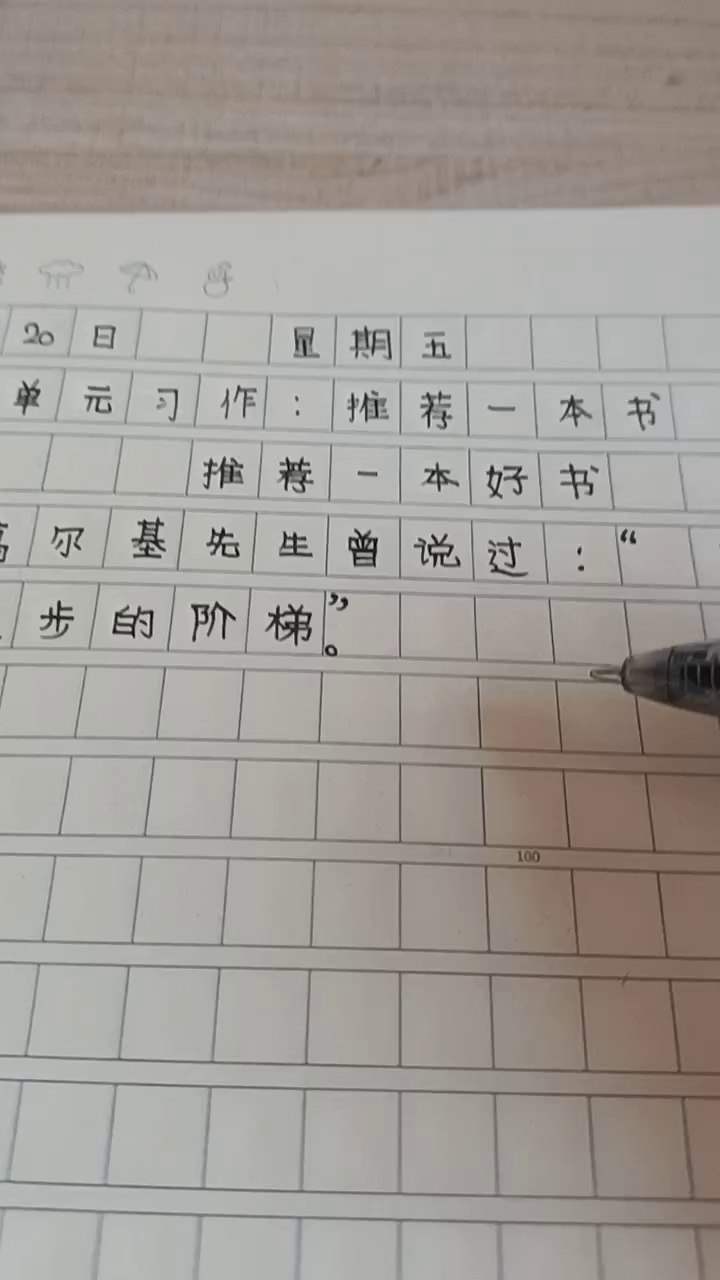 20日 星期五
单元习作：推荐一本书
推荐一本好书
高尔基先生曾说过：“
步的阶梯”。
100